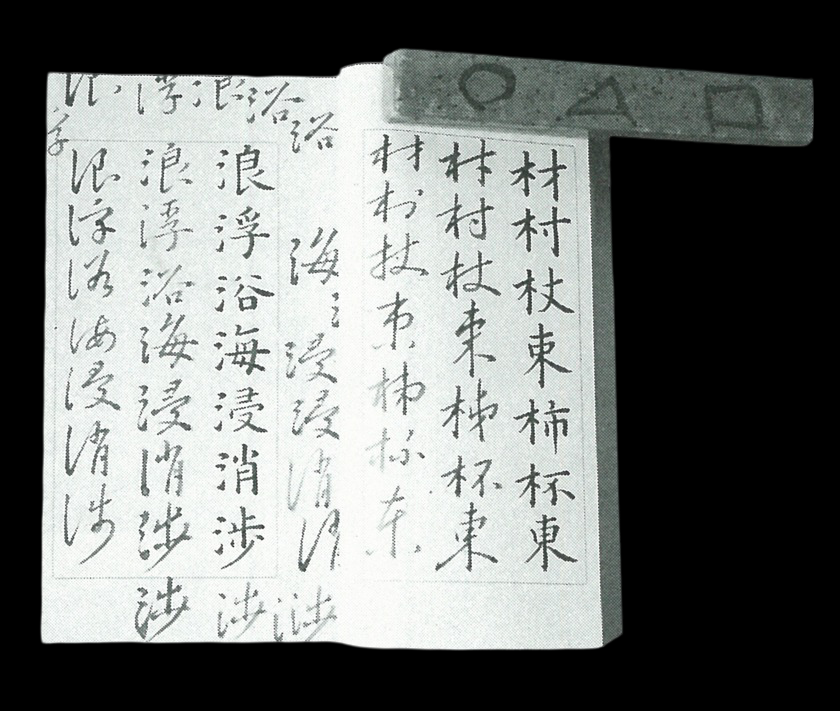 材村杖束柿杯東
材村杖束柿杯東
材村杖束柿杯東
浴
海
浸浸消
渉
浴
浪
浪浮浴海浸消渉
渉
浮
浪浮浴海浸消渉
渉
浪
浪浮浴海浸消渉